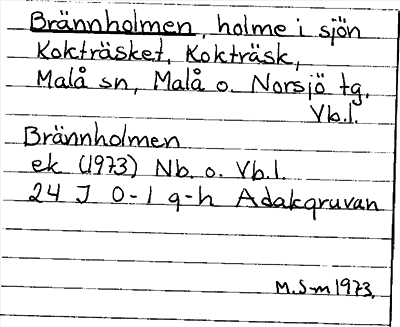 Brännholmen, holme i sjön
Kokträsket, Kokträsk,
Malå sn, Malå o. Norsjö tg,
Vb.l.
Brännholmen
ek (1973) Nb. o. Vb.l.
24 J 0-1 g-h Adakgruvan
M.S-m 1973.